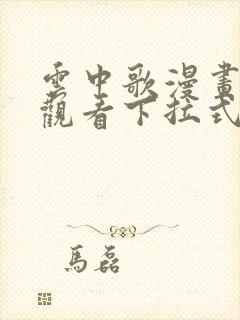 雲中歌漫畫
觀看下拉式
馬磊